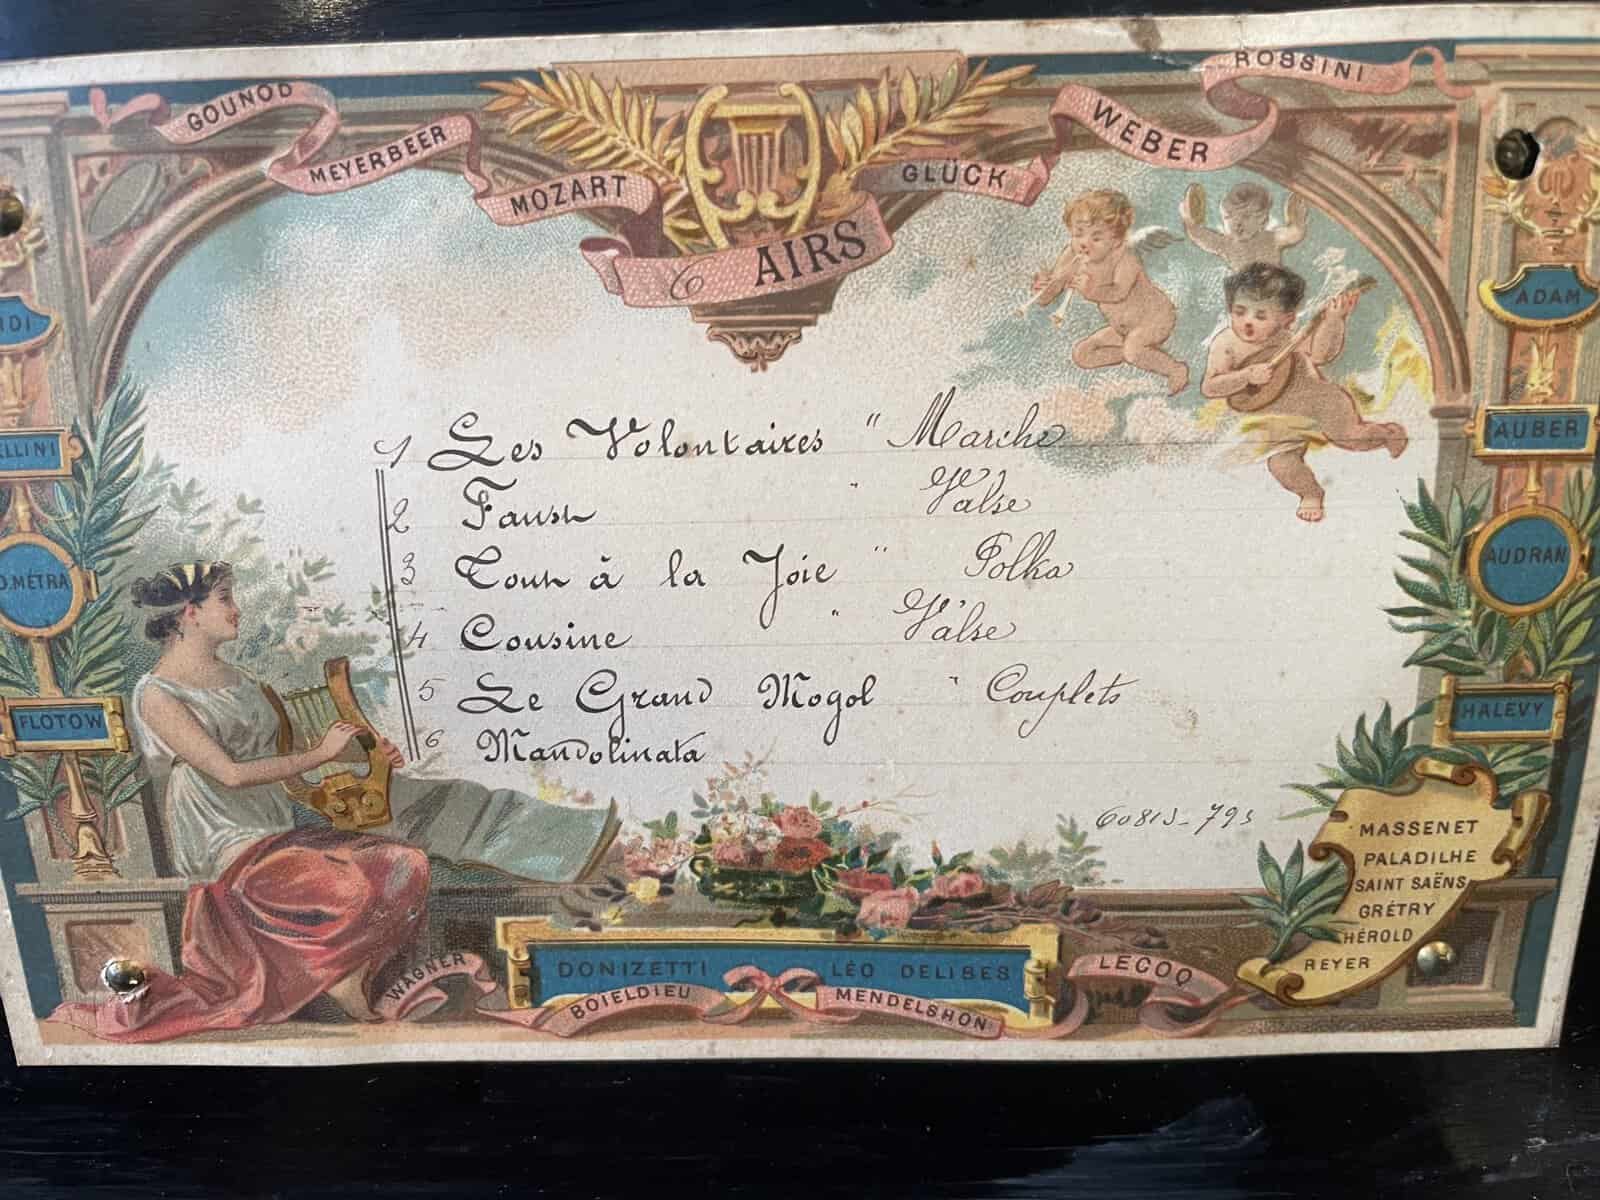 GOUNOD
MEYERBEER
MOZART
GLÜCK
WEBER
ROSSINI
6 AIRS
RDI
ELLINI
O.MÉTRA
FLOTOW
1 Les Volontaires " Marche
2 Faust " Valse
3 Tout à la Joie " Polka
4 Cousine " Valse
5 Le Grand Mogol " Couplets
6 Mandolinata
60813-793
ADAM
AUBER
AUDRAN
HALEVY
MASSENET
PALADILHE
SAINT SAËNS
GRÉTRY
HÉROLD
REYER
WAGNER
DONIZETTI
LÉO DELIBES
BOIELDIEU
MENDELSHON
LECOQ